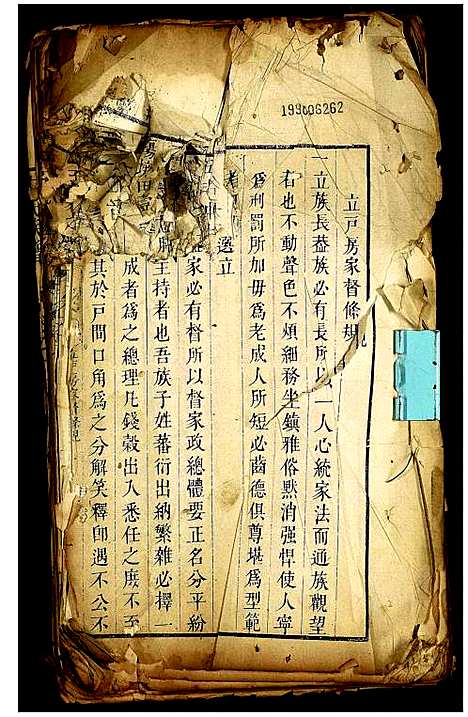 199606262
立戸房家督條規
一立族長葢族必有長所以一人心統家法而通族觀望
者也不動聲色不煩細務坐鎮雅俗默消强悍使人寧
爲刑罰所加毋爲老成人所短必齒德俱尊堪爲型範
者 選立
家必有督所以督家政總體要正名分平紛
主持者也吾族子姓蕃衍出納繁雜必擇一
成者爲之總理凡錢榖出入悉任之庶不至
其於戸間口角爲之分解笑釋卽遇不公不
房家督條規